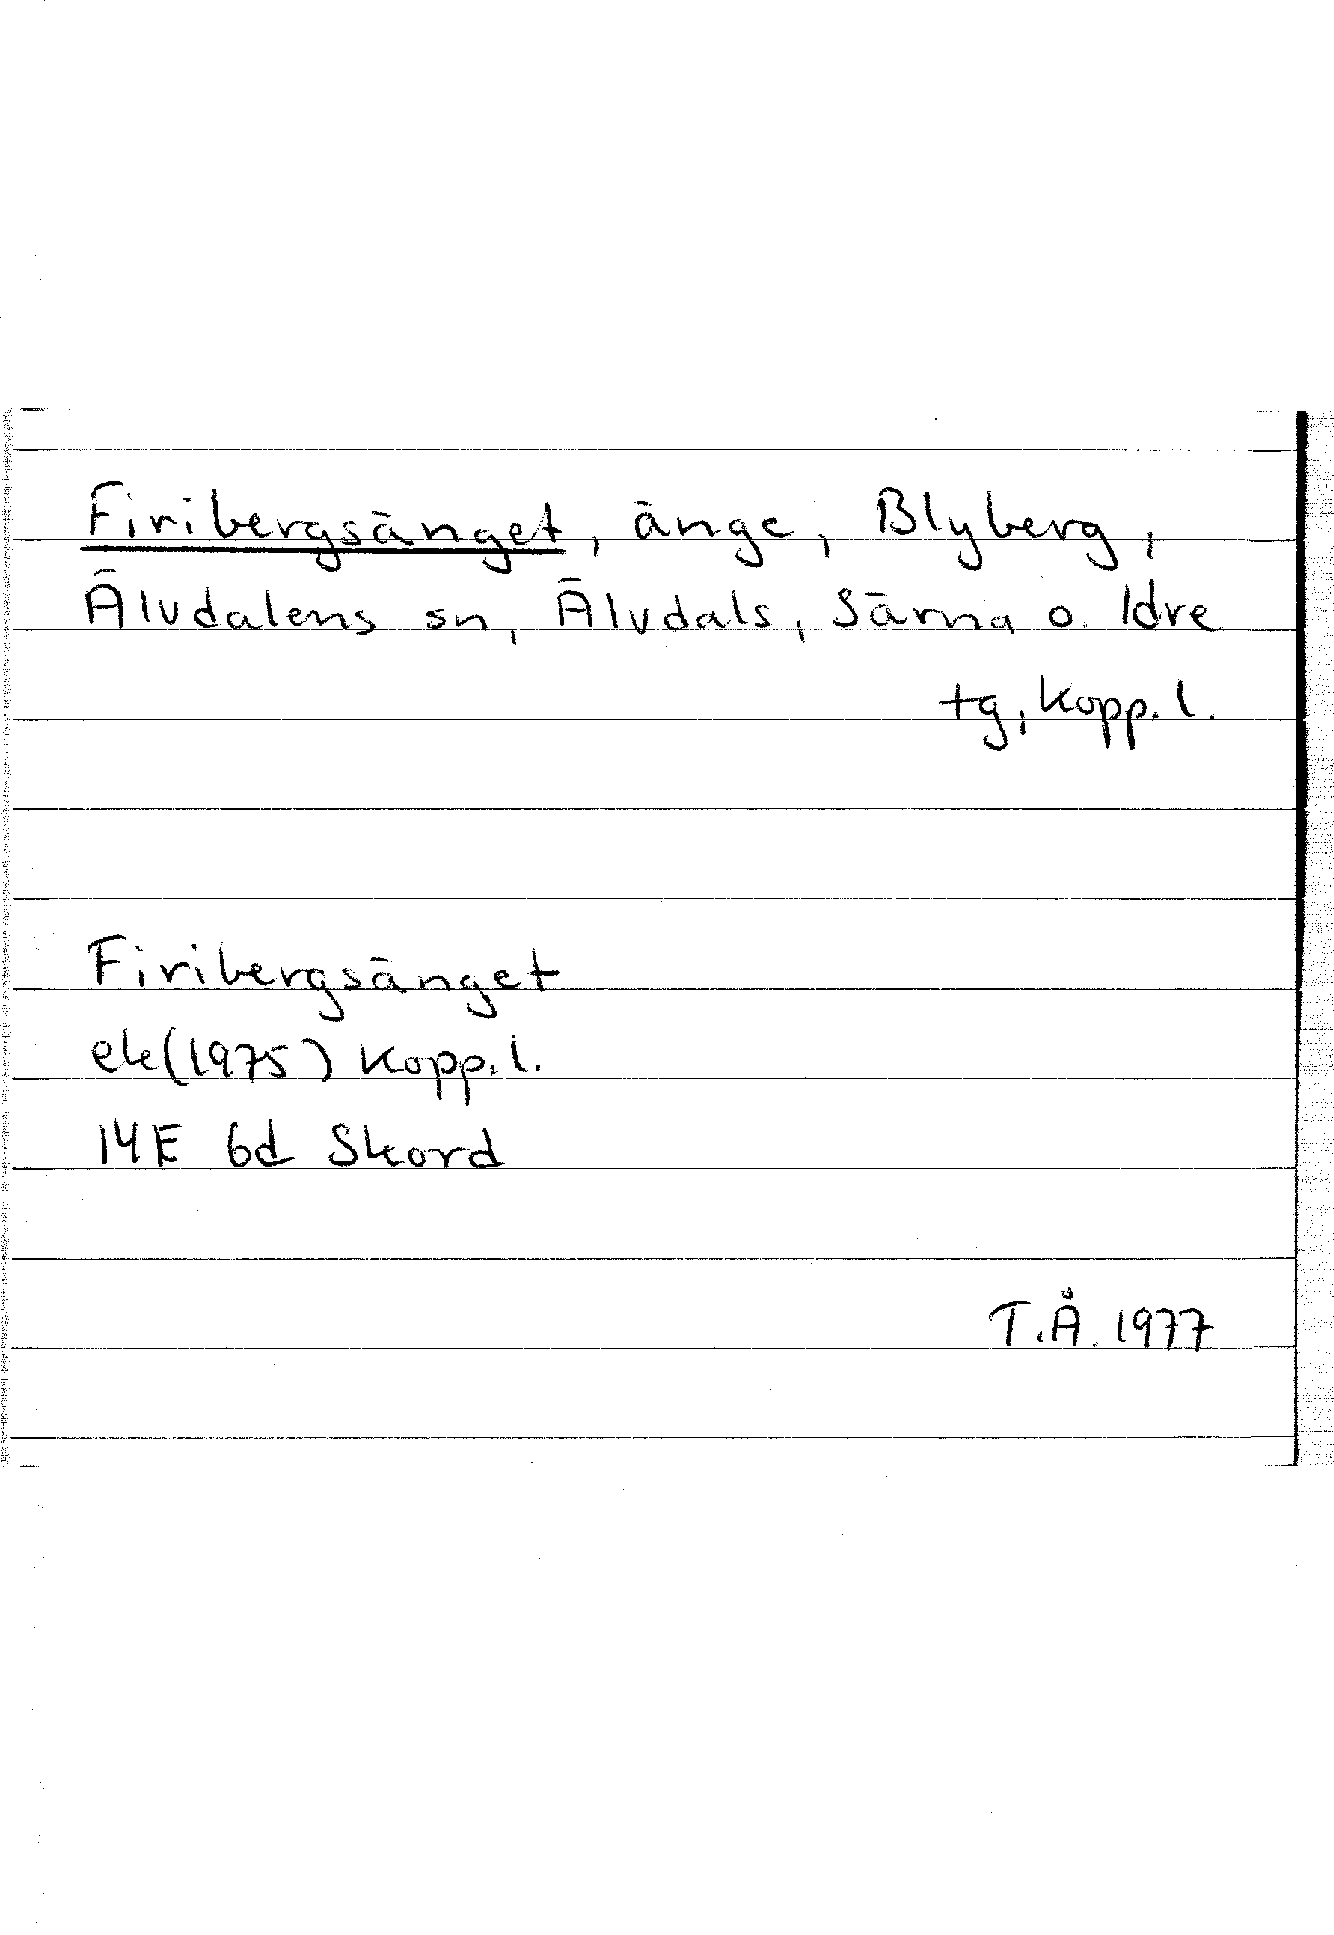 Firibergsänget, änge, Blyberg,
Älvdalens sn, Älvdals, Särna o. Idre
tg, Kopp. l.
Firibergsänget
ek (1975) Kopp. l.
14E 6d Skord
T.Å. 1977